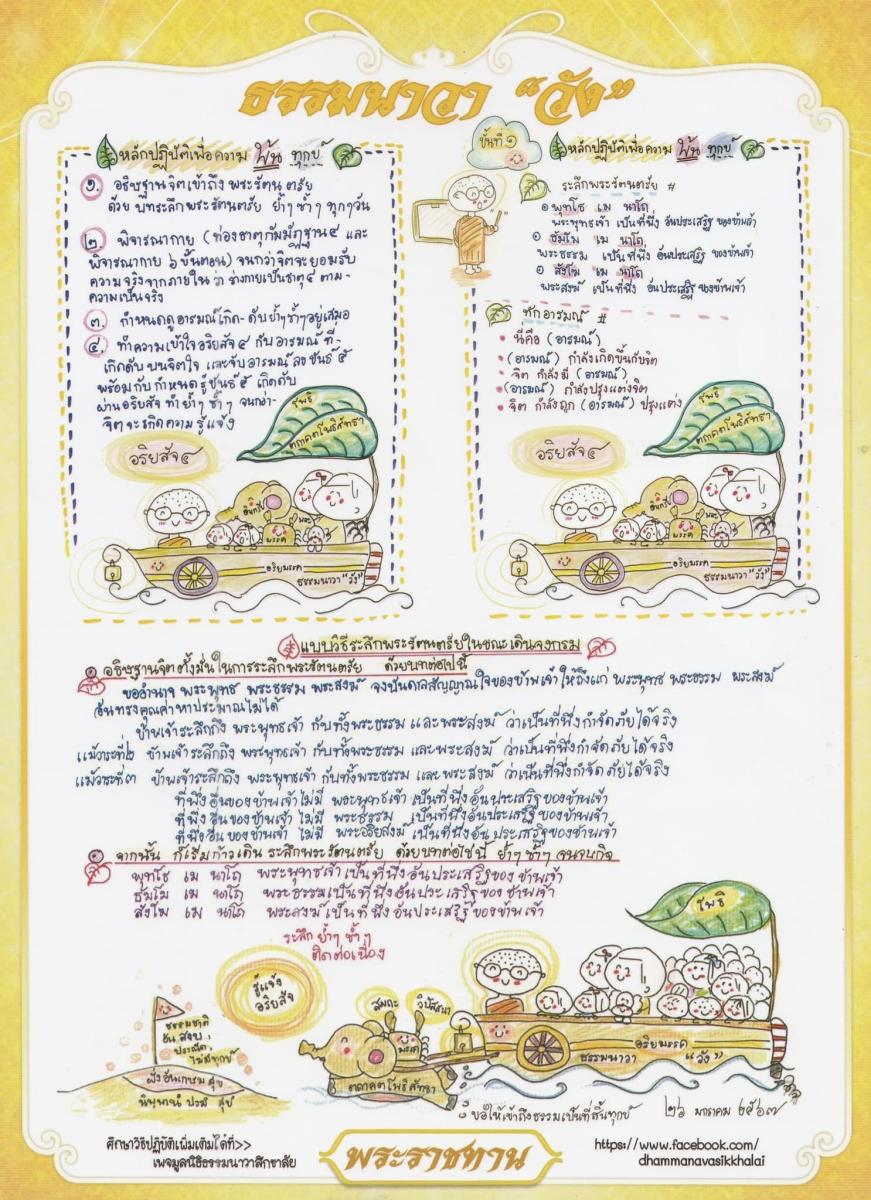 ธรรมนาวา “วัง”
หลักปฏิบัติเพื่อความ พ้น ทุกข์
๑. อธิษฐานจิตเข้าถึง พระรัตนตรัย
ด้วย บทระลึกพระรัตนตรัย ย้ำๆ ซ้ำๆ ทุกๆวัน
๒. พิจารณากาย (ท่องธาตุกัมมัฏฐาน๔ และ
พิจารณากาย ๖ ขั้นตอน) จนกว่าจิตจะยอมรับ
ความจริงจากภายใน ว่า ร่างกายเป็นธาตุ๔ ตาม-
ความเป็นจริง
๓. กำหนดดูอารมณ์เกิด-ดับย้ำๆซ้ำๆอยู่เสมอ
๔. ทำความเข้าใจอริยสัจ๔ กับอารมณ์ที่-
เกิดดับ บนจิตใจ และจับอารมณ์ลงขันธ์ ๕
พร้อมกับกำหนดรู้ขันธ์ ๕ เกิดดับ
ผ่านอริยสัจ ทำย้ำๆ ซ้ำๆ จนกว่า-
จิตจะเกิดความ รู้แจ้ง
อริยสัจ๔
โพธิ
ตถาคตโพธิสัทธา
อินทรีย์
มรรค
พละ
อริยมรรค
ธรรมนาวา “วัง”
ขั้นที่ ๑
หลักปฏิบัติเพื่อความ พ้น ทุกข์
ระลึกพระรัตนตรัย #
พุทโธ เม นาโถ
พระพุทธเจ้า เป็นที่พึ่ง อันประเสริฐ ของข้าพเจ้า
ธัมโม เม นาโถ
พระธรรม เป็นที่พึ่ง อันประเสริฐ ของข้าพเจ้า
สังโฆ เม นาโถ
พระสงฆ์ เป็นที่พึ่ง อันประเสริฐ ของข้าพเจ้า
ทักอารมณ์ #
• นี่คือ (อารมณ์)
• (อารมณ์) กำลังเกิดขึ้นกับจิต
• จิต กำลังมี (อารมณ์)
• (อารมณ์) กำลังปรุงแต่งจิต
• จิต กำลังถูก (อารมณ์) ปรุงแต่ง
อริยสัจ๔
โพธิ
ตถาคตโพธิสัทธา
อินทรีย์
มรรค
พละ
อริยมรรค
ธรรมนาวา “วัง”
แบบวิธีระลึกพระรัตนตรัยในขณะเดินจงกรม
อธิษฐานจิตตั้งมั่นในการระลึกพระรัตนตรัย ด้วยบทต่อไปนี้
ขออำนาจ พระพุทธ พระธรรม พระสงฆ์ จงบันดาลสัญญาณใจของข้าพเจ้าให้ถึงแก่ พระพุทธ พระธรรม พระสงฆ์
อันทรงคุณค่าหาประมาณไม่ได้
ข้าพเจ้าระลึกถึง พระพุทธเจ้า กับทั้งพระธรรม และพระสงฆ์ ว่าเป็นที่พึ่งกำจัดภัยได้จริง
แม้วาระที่๒ ข้าพเจ้าระลึกถึง พระพุทธเจ้า กับทั้งพระธรรม และพระสงฆ์ ว่าเป็นที่พึ่งกำจัดภัยได้จริง
แม้วาระที่๓ ข้าพเจ้าระลึกถึง พระพุทธเจ้า กับทั้งพระธรรม และพระสงฆ์ ว่าเป็นที่พึ่งกำจัดภัยได้จริง
ที่พึ่งอื่นของข้าพเจ้าไม่มี พระพุทธเจ้า เป็นที่พึ่งอันประเสริฐของข้าพเจ้า
ที่พึ่งอื่นของข้าพเจ้า ไม่มี พระธรรม เป็นที่พึ่งอันประเสริฐ ของข้าพเจ้า
ที่พึ่งอื่นของข้าพเจ้า ไม่มี พระอริยสงฆ์ เป็นที่พึ่งอันประเสริฐของข้าพเจ้า
จากนั้น ก็เริ่มก้าวเดิน ระลึกพระรัตนตรัย ด้วยบทต่อไปนี้ ย้ำๆ ซ้ำๆ จนจบกิจ
พุทโธ เม นาโถ พระพุทธเจ้าเป็นที่พึ่งอันประเสริฐของข้าพเจ้า
ธัมโม เม นาโถ พระธรรมเป็นที่พึ่งอันประเสริฐของข้าพเจ้า
สังโฆ เม นาโถ พระสงฆ์เป็นที่พึ่งอันประเสริฐของข้าพเจ้า
ระลึก ย้ำๆ ซ้ำๆ
ติดต่อเนื่อง
รู้แจ้ง
อริยสัจ
ธรรมชาติ
อันสงบ,
ประณีต,
ไม่มีทุกข์
ฝั่งอันเกษม สุข
นิพพานัง ปรมัง สุขัง
สมถะ
วิปัสสนา
มรรค
ตถาคตโพธิสัทธา
โพธิ
อริยมรรค
ธรรมนาวา “วัง”
ขอให้เข้าถึงธรรมเป็นที่สิ้นทุกข์
๒๖ มกราคม ๒๕๖๗
ศึกษาวิธีปฏิบัติเพิ่มเติมได้ที่>>
เพจมูลนิธิธรรมนาวาสิกขาลัย
พระราชทาน
https://www.facebook.com/
dhammanavasikkhalai